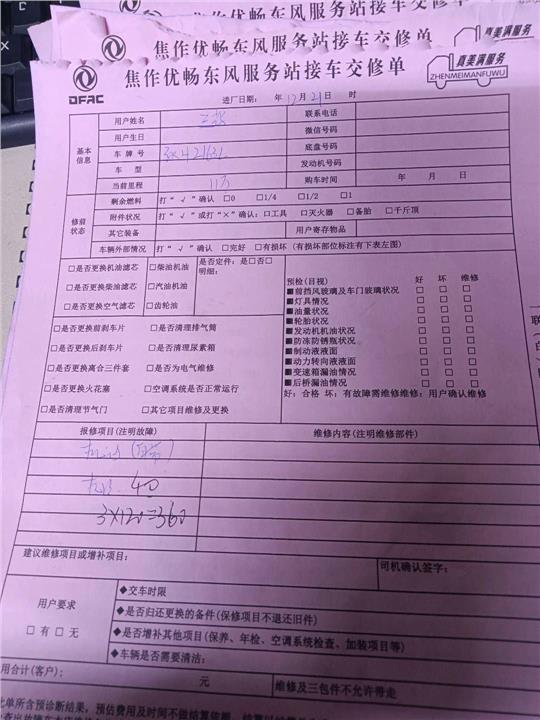 焦作优畅东风服务站接车交修单
真美满服务
焦作优畅东风服务站接车交修单
真美满服务
ZHENMEIMANFUWU
DFAC
进厂日期： 年 12月 21日 时
基本信息
用户姓名
联系电话
用户生日
微信号码
车 牌 号
底盘号码
车 型
发动机号码
当前里程 11万 购车时间 年 月 日
修前状态
剩余燃料 打“√”确认 □0 □1/4 □1/2 □1
附件状况 打“√”或打“×”确认：□工具 □灭火器 □备胎 □千斤顶
其它装备 用户寄存物品
车辆外部情况 打“√”确认 □完好 □有损坏（有损坏部位标注有下表左图）
□是否更换机油滤芯 □柴油机油 是否定件：是□否□
明细：
□是否更换柴油滤芯 □汽油机油
□是否更换空气滤芯 □齿轮油
□是否更换前刹车片 □是否清理排气筒
□是否更换后刹车片 □是否清理尿素箱
□是否更换离合三件套 □是否为电气维修
□是否更换火花塞 □空调系统是否正常运行
□是否清理节气门 □其它项目维修及更换
预检（目视） 好 坏 维修
■前挡风玻璃及车门玻璃状况 □ □ □
■灯具情况 □ □ □
■油量状况 □ □ □
■轮胎状况 □ □ □
■发动机机油状况 □ □ □
■防冻防锈瓶状况 □ □ □
■制动液液面 □ □ □
■动力转向液液面 □ □ □
■变速箱漏油情况 □ □ □
■后桥漏油情况 □ □ □
好：合格 坏：有故障需维修维修：用户确认维修
报修项目（注明故障） 维修内容（注明维修部件）
40
3×120=360
建议维修项目或增补项目：
司机确认签字：
用户要求
□有 □无
◆交车时限
◆是否归还更换的备件（保修项目不退还旧件）
◆是否增补其他项目（保养、年检、空调系统检查、加装项目等）
◆车辆是否需要清洁：
用合计（客户）： 元 维修及三包件不允许带走
此单所含预诊断结果，预估费用及时间不做结算依据，